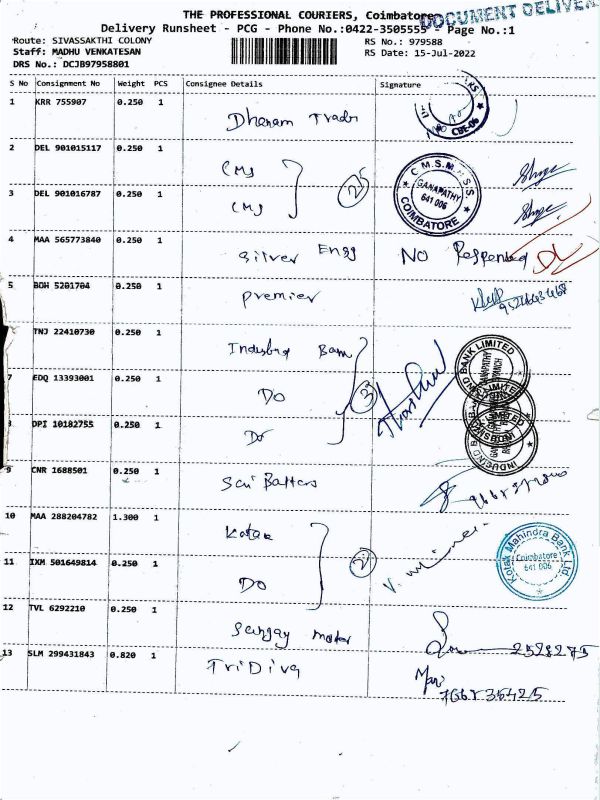 THE PROFESSIONAL COURIERS, Coimbatore
DOCUMENT DELIVER
Delivery Runsheet - PCG - Phone No.:0422-3505555 - Page No.:1
Route: SIVASSAKTHI COLONY
RS No.: 979588
Staff: MADHU VENKATESAN
RS Date: 15-Jul-2022
DRS No.: DCJB97958801
S No Consignment No Weight PCS Consignee Details Signature
1 KRR 755907 0.250 1 Dhanam Trader
CBE-06
2 DEL 901015117 0.250 1 CMS
C.M.S.M.H.S.S. GANAPATHY 641 006 COIMBATORE
3 DEL 901016787 0.250 1 CMS
4 MAA 565773840 0.250 1 Silver Engg NO Responed
5 BOH 5201704 0.250 1 premier
TNJ 22410730 0.250 1 Indusind Bank
INDUSIND BANK LIMITED GANAPATHY BRANCH
7 EDQ 13393001 0.250 1 DO
3
8 DPI 10182755 0.250 1 Do
9 CNR 1688501 0.250 1 Sai Batters
10 MAA 288204782 1.300 1 Kotak
Kotak Mahindra Bank Ltd. Coimbatore 641 006
11 IXM 501649814 0.250 1 DO
12 TVL 6292210 0.250 1 Sanjay motor
2528275
13 SLM 299431843 0.820 1 TriDiva